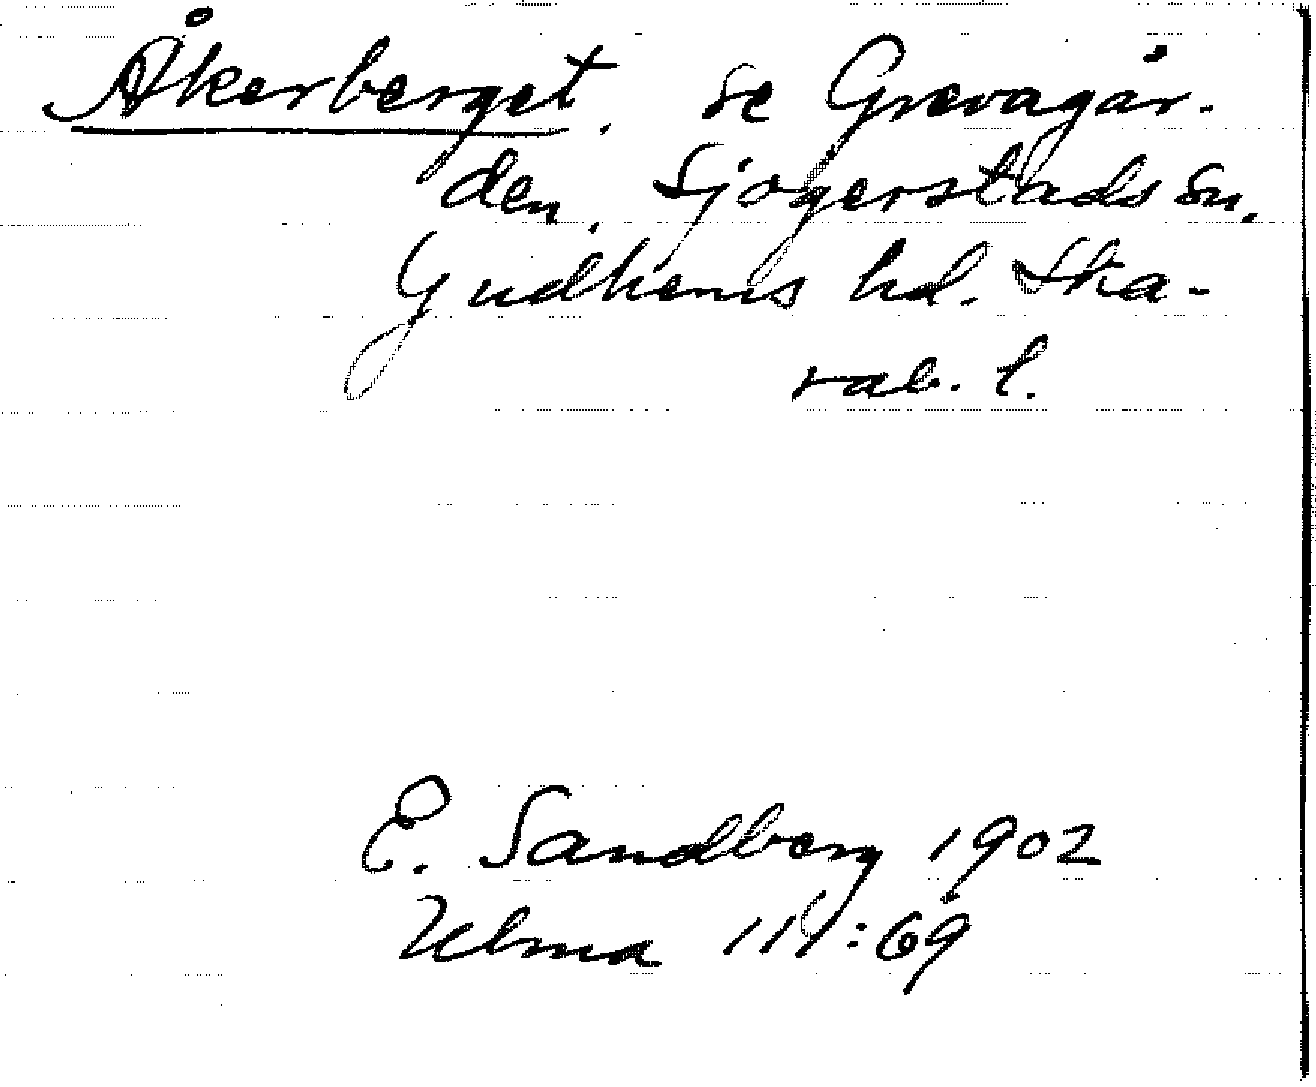 Åkerberget, se Grevagår-
den, Sjogerstads sn.
Gudhems hd. Ska-
rab. l.
E. Sandberg 1902
Ulma 111:69